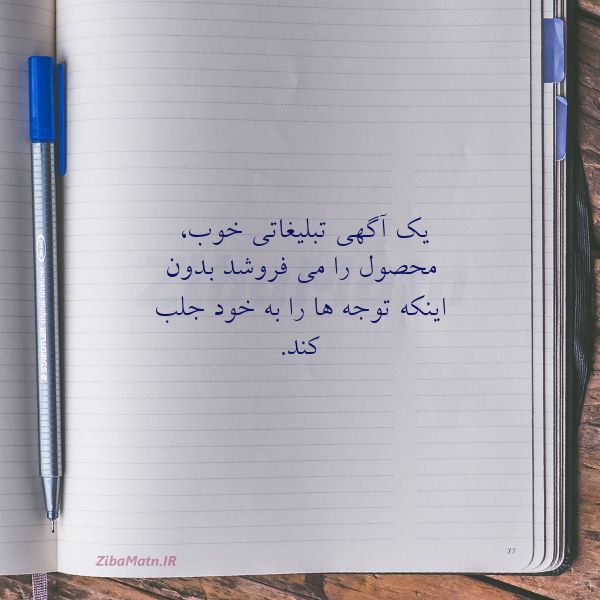 یک آگهی تبلیغاتی خوب،
محصول را می فروشد بدون
اینکه توجه ها را به خود جلب
کند.
77
ZibaMatn.IR